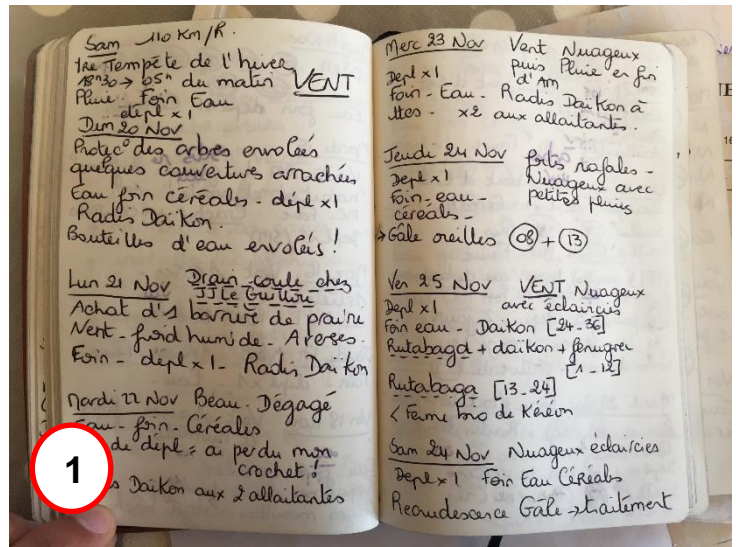 Sam 110 Km/h.
1re Tempête de l'hiver
18h30 → 05h du matin VENT
Pluie Foin Eau
dépl x 1
Dim 20 Nov
Protec° des arbres envolées
quelques couvertures arrachées
Eau foin céréales - dépl x1
Radis Daïkon.
Bouteilles d'eau envolées !
Lun 21 Nov Drain coule chez
JJ Le Guillou
Achat d'1 barrière de prairie
Vent - froid humide - Averses.
Foin - dépl x 1 - Radis Daïkon
Mardi 22 Nov Beau - Dégagé
Eau - foin - Céréales
de dépl = ai perdu mon
crochet !
Daikon aux 2 allaitantes
1
Merc 23 Nov Vent Nuageux
Depl x1 puis Pluie en fin
d'Am
Foin - Eau - Radis Daïkon à
ttes - x2 aux allaitantes.
Jeudi 24 Nov forts rafales -
Depl x1 Nuageux avec
Foin - eau - petites pluies
céréales -
→ Gâle oreilles 08 + 13
Ven 25 Nov VENT Nuageux
Depl x1 avec éclaircies
Foin eau - Daïkon [24-36]
Rutabaga + daïkon + fenugrec
[1-12]
Rutabaga [13-24]
< Ferme de Kéréon
Sam 24 Nov Nuageux éclaircies
Depl x 1 Foin Eau Céréales
Recrudescence Gâle → traitement